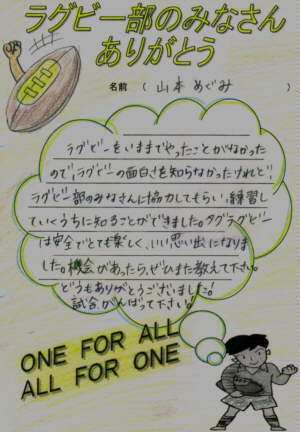 ラグビー部のみなさん
ありがとう
名前 ( 山本 めぐみ )
ラグビーをいままでやったことがなかった
ので、ラグビーの面白さを知らなかったけれど、
ラグビー部のみなさんに協力してもらい、練習し
ていくうちに知ることができました。タグラグビー
は安全でとても楽しく、いい思い出になりま
した。機会があったら、ぜひまた教えて下さい。
どうもありがとうございました。
試合がんばって下さい。
ONE FOR ALL
ALL FOR ONE